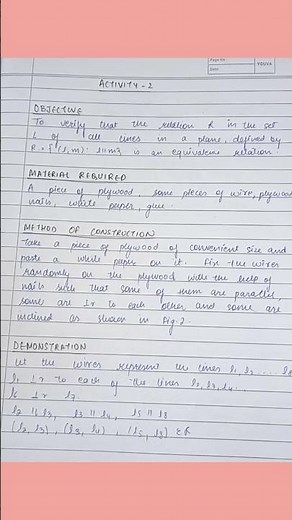 Page No.
Date
YOUVA
ACTIVITY - 2
OBJECTIVE
To verify that the relation R in the set
L of all lines in a plane, defined by
R = {(l, m) : l || m} is an equivalence relation
MATERIAL REQUIRED
A piece of plywood, some pieces of wire, plywood
nails, white paper, glue.
METHOD OF CONSTRUCTION
Take a piece of plywood of convenient size and
paste a white paper on it. Fix the wires
randomly on the plywood with the help of
nails such that some of them are parallel,
some are ⊥r to each other and some are
inclined as shown in Fig. 2
DEMONSTRATION
Let the wires represent the lines l1, l2, ....
l1 ⊥r to each of the lines l2, l3, l4
l6 ⊥r l7
l2 || l3, l3 || l4, l5 || l8
(l2, l3), (l3, l4), (l5, l8) ∈ R